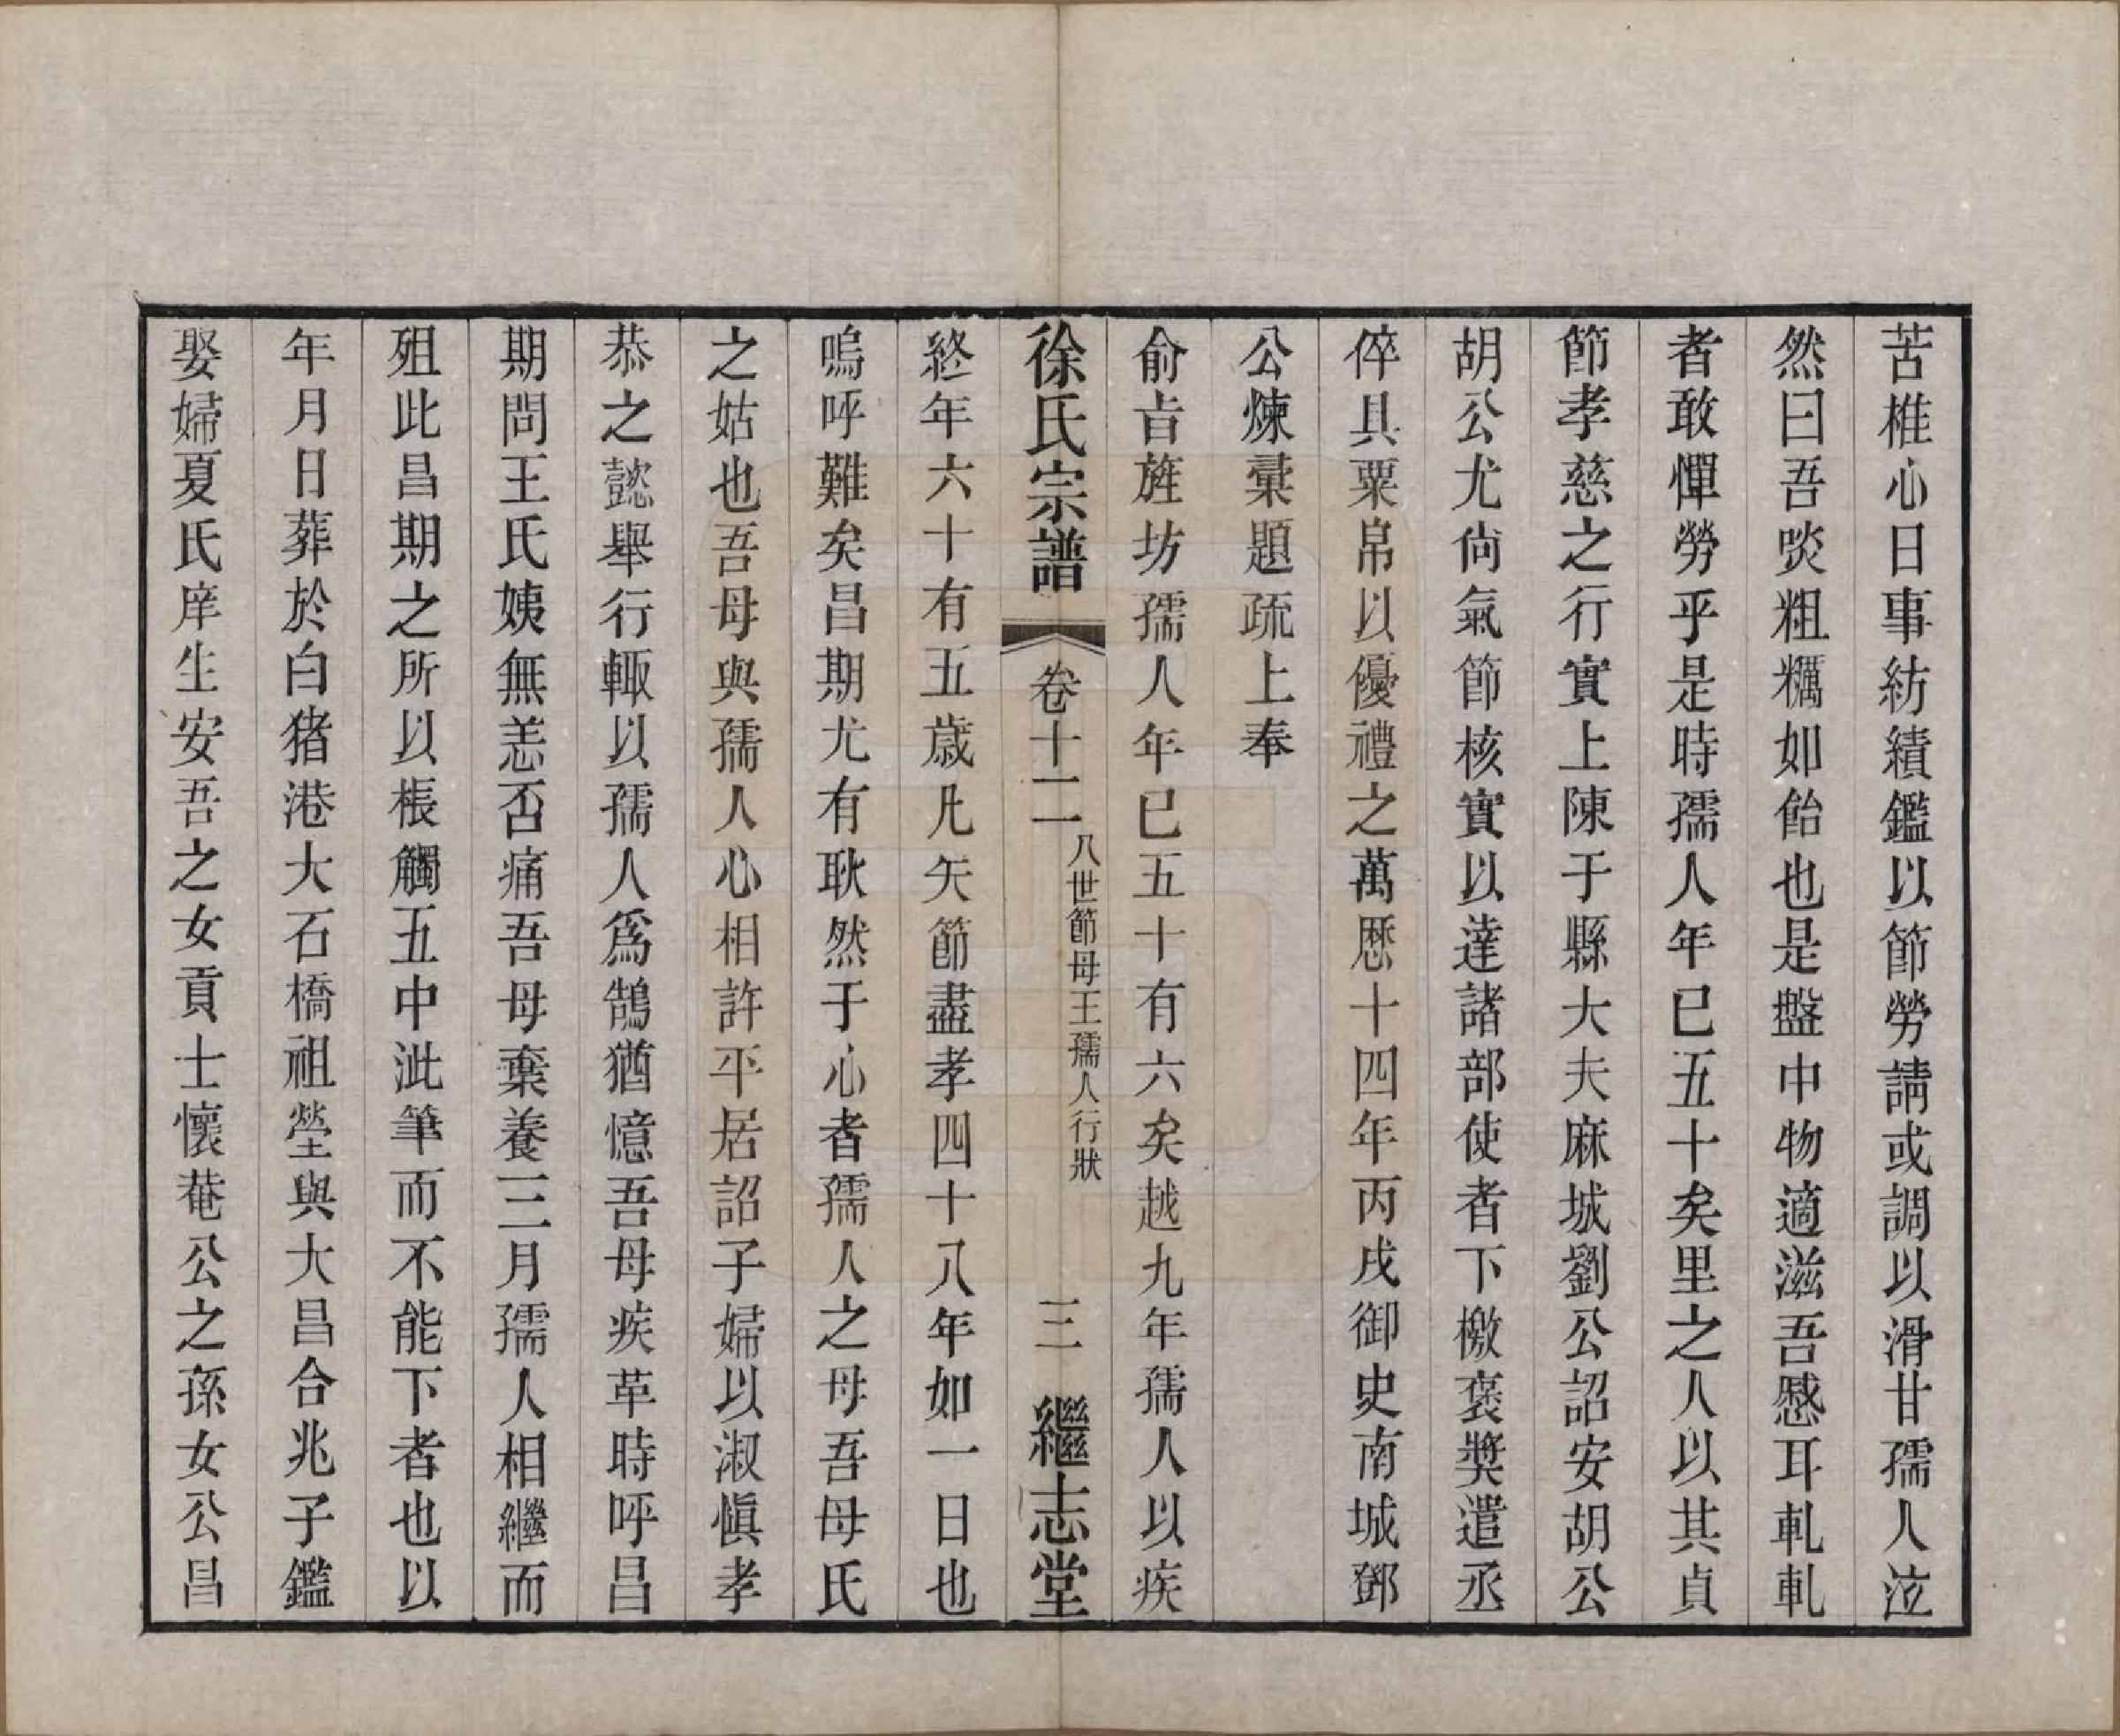 苦椎心日事紡績鑑以節勞請或調以滑甘孺人泣
然曰吾啖粗糲如飴也是盤中物適滋吾慼耳軋軋
者敢憚勞乎是時孺人年已五十矣里之人以其貞
節孝慈之行實上陳于縣大夫麻城劉公詔安胡公
胡公尤尙氣節核實以達諸部使者下檄褒奬遣丞
倅具粟帛以優禮之萬厯十四年丙戌御史南城鄧
公煉彙題疏上奉
俞㫖旌坊孺人年已五十有六矣越九年孺人以疾
徐氏宗譜 卷十二 八世節母王孺人行狀 三 繼志堂
終年六十有五歲凡矢節盡孝四十八年如一日也
嗚呼難矣昌期尤有耿然于心者孺人之母吾母氏
之姑也吾母與孺人心相許平居詔子婦以淑愼孝
恭之懿舉行輙以孺人爲鵠猶憶吾母疾革時呼昌
期問王氏姨無恙否痛吾母棄養三月孺人相繼而
殂此昌期之所以棖觸五中泚筆而不能下者也以
年月日葬於白猪港大石橋祖塋與大昌合兆子鑑
娶婦夏氏庠生安吾之女貢士懷菴公之孫女公昌